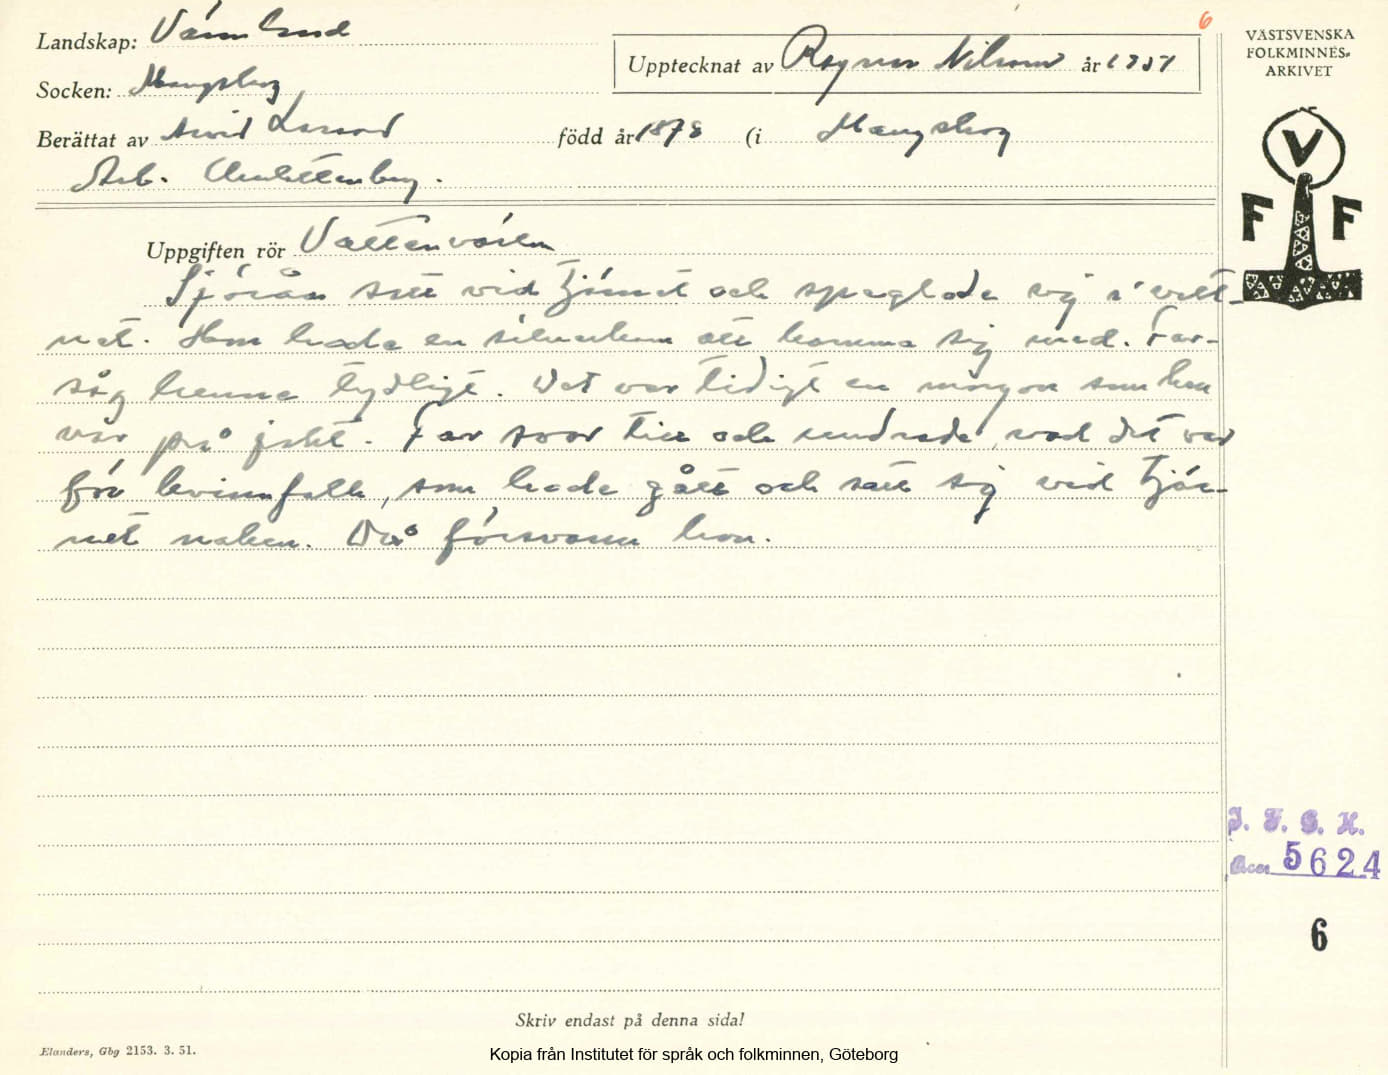 6
Landskap: Värmland
Upptecknat av Ragnar Nilsson år 1951
Socken: Mangskog
Berättat av Arvid Larsson född år 1878 (i Mangskog
Arb.
Uppgiften rör Vattenväsen
Sjörån satt vid tjärnet och speglade sig i vatt-
net. Hon hade en silverkam att kamma sig med. Far
såg henne tydligt. Det var tidigt en morgon som han
var på jakt. Far svor till och undrade, vad det var
för kvinnfolk, som hade gått och satt sig vid tjär-
net naken. Då försvann hon.
VÄSTSVENSKA
FOLKMINNES-
ARKIVET
V
F F
I. F. G. H.
Acc. 5624
6
Skriv endast på denna sida!
Elanders, Gbg 2153. 3. 51.
Kopia från Institutet för språk och folkminnen, Göteborg